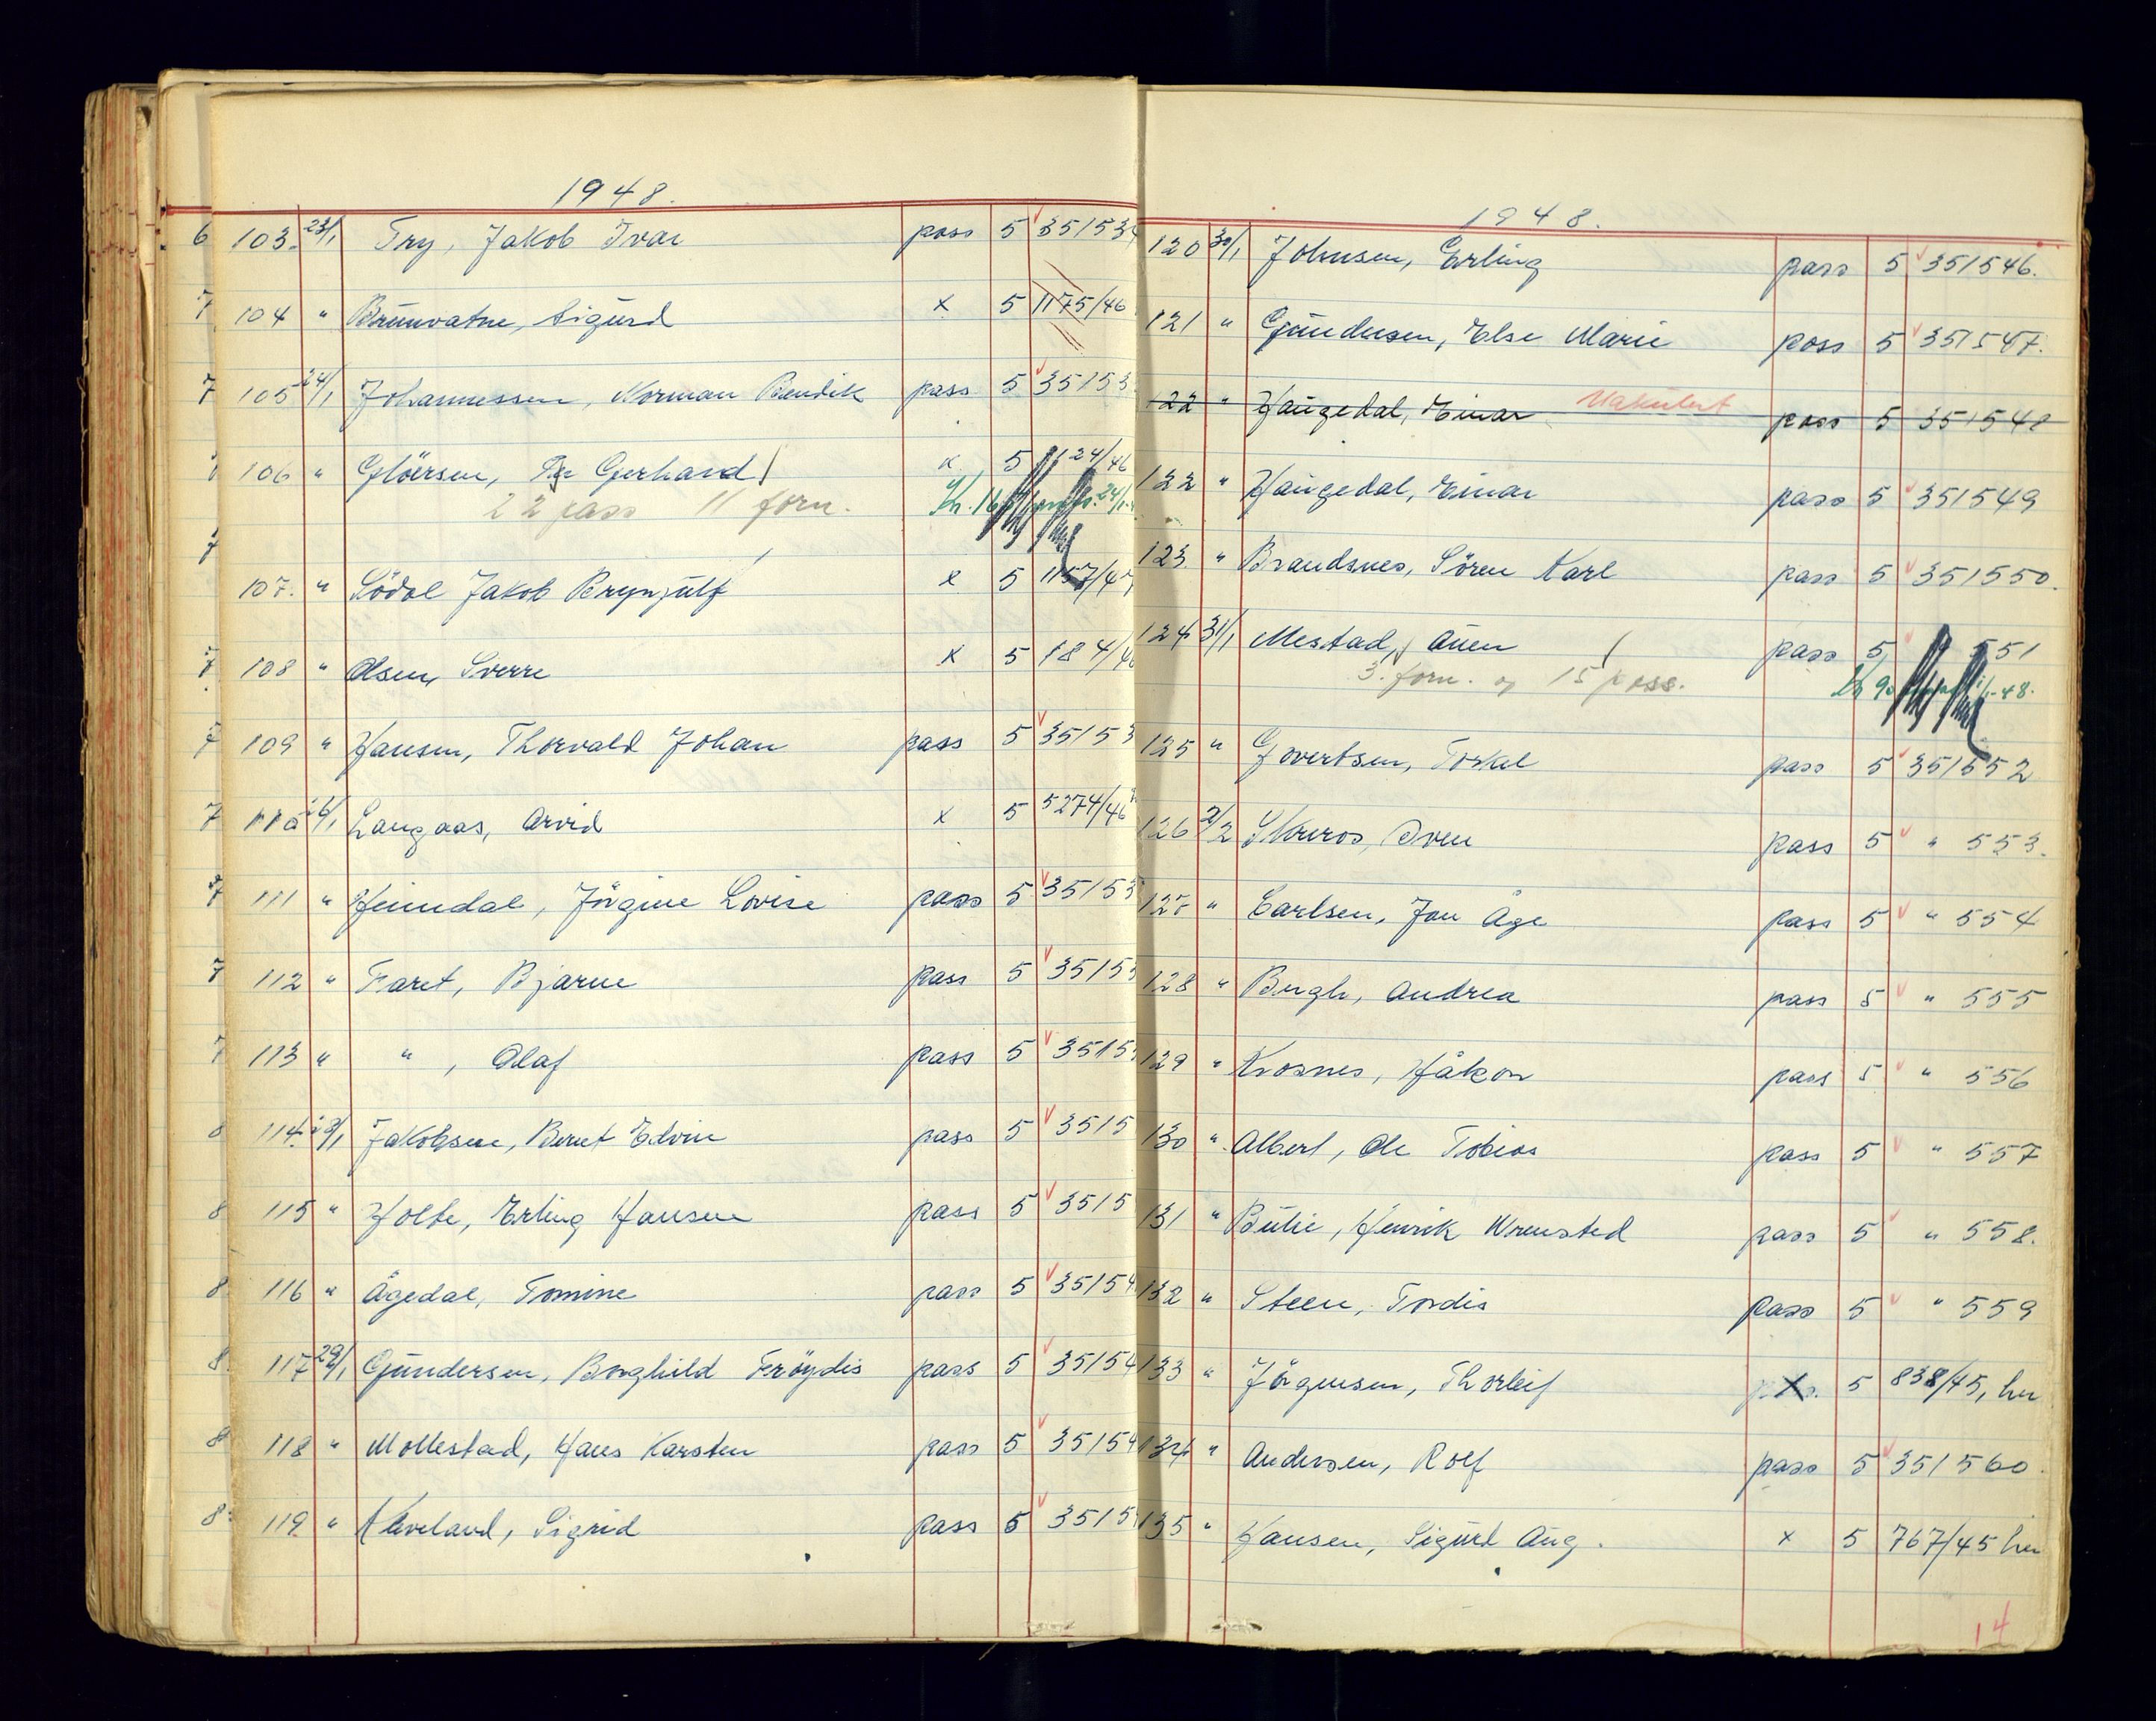 1948.
6 103. 23/1 Try, Jakob Ivar pass 5 √ 35153
7 104 " Brunvatne, Sigurd x 5 1175/46
7 105 24/1 Johannessen, Norman Bendik pass 5 √ 35153
106 " Glöersen, Gerhard x 5 1124/46
22 pass 11 forn. Kr. 24/1
7
107. " Södal Jakob Brynjulf x 5 1157/47
7 108 " Olsen, Sverre x 5 184/46
7 109 " Hansen, Thorvald Johan pass 5 √ 35153
7 110 26/1 Langaas, Arvid x 5 5274/46
7 111 " Heimdal, Jörgine Lovise pass 5 √ 35153
7 112 " Faret, Bjarne pass 5 √ 35153
7 113 " " , Olaf pass 5 √ 3515
8 114. 28/1 Jakobsen, Bernt Edvin pass 5 √ 3515
8 115 " Holte, Erling Hansen pass 5 √ 3515
8 116 " Ågedal, Tomine pass 5 √ 35154
8 117 29/1 Gundersen, Borghild Fröydis pass 5 √ 35154
8 118 " Mollestad, Hans Karsten pass 5 √ 35154
8 119 " Kleveland, Sigrid pass 5 √ 3515
1948.
120 30/1 Johnsen, Erling pass 5 √ 351546.
121 " Gundersen, Else Marie pass 5 √ 351547.
122 " Haugedal, Einar Makulert pass 5 351548
122 " Haugedal, Einar pass 5 √ 351549
123 " Brandsnes, Sören Karl pass 5 √ 351550.
124 31/1 Mestad, Auen pass 5 551
3. forn. og 15 pass. Kr 90 -48.
125 " Govertsen, Torkel pass 5 √ 351552
126 2/2 Skuros, Sven pass 5 √ " 553.
127 " Carlsen, Jan Åge pass 5 √ " 554
128 " Bergh, Andrea pass 5 √ " 555
129 " Krosnes, Håkon pass 5 √ " 556
130 " Albert, Ole Tobias pass 5 √ " 557
131 " Bulie, Henrik Wrensted pass 5 √ " 558.
132 " Steen, Tordis pass 5 √ " 559
133 " Jörgensen, Thorleif x 5 838/45, her
134 " Andersen, Rolf pass 5 √ 351560.
135 " Hansen, Sigurd Aug. x 5 767/45 her
14